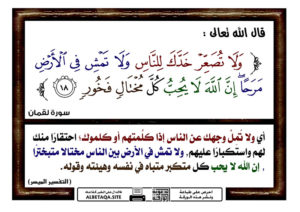 قال الله تعالى :
﴿ وَلَا تُصَعِّرْ خَدَّكَ لِلنَّاسِ وَلَا تَمْشِ فِي الْأَرْضِ
مَرَحًا ۖ إِنَّ اللَّهَ لَا يُحِبُّ كُلَّ مُخْتَالٍ فَخُورٍ ١٨ ﴾
سورة لقمان
أي ولا تمل وجهك عن الناس إذا كلَّمتهم أو كلموك؛ احتقارًا منك
لهم واستكبارًا عليهم، ولا تمش في الأرض بين الناس مختالا متبخترًا
، إن الله لا يحب كل متكبر متباه في نفسه وهيئته وقوله.
( التفسير الميسر )
احرص على طباعة
ونشر هذه البطاقة
ALBETAQA.SITE